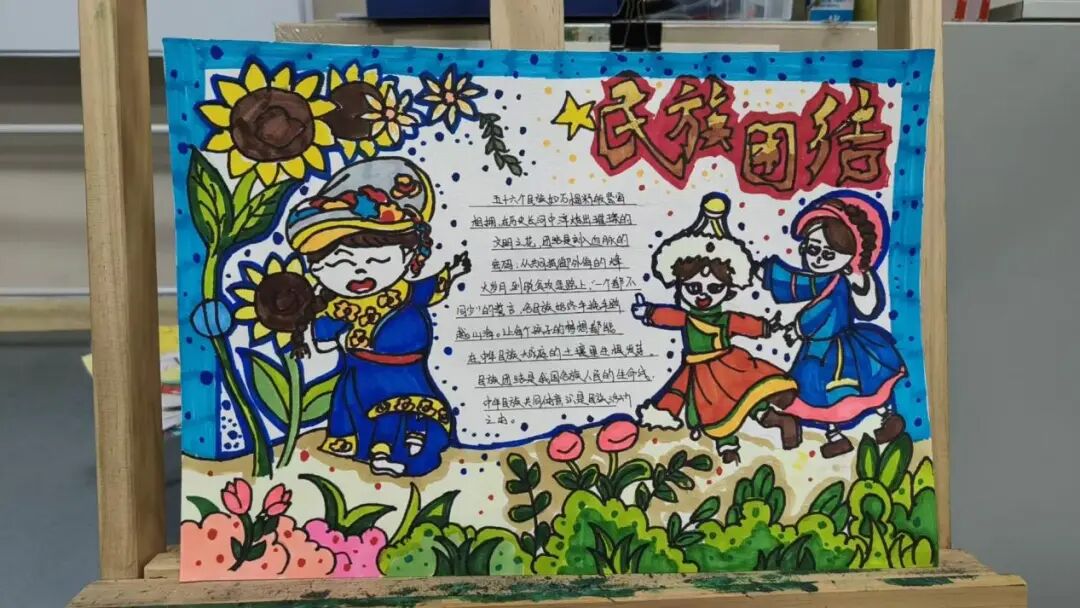 民族团结
五十六个民族如石榴籽般紧密
相拥,在历史长河中淬炼出璀璨的
文明之花。团结是刻入血脉的
密码:从共同抵御外侮的烽
火岁月到脱贫攻坚路上,"一个都不
同少"的誓言,各民族始终手挽手跨
越山海。让每个孩子的梦想都能
在中华民族大家庭的土壤里生根发芽。
民族团结是我国各族人民的生命线,
中华民族共同体意识是民族团结
之本。